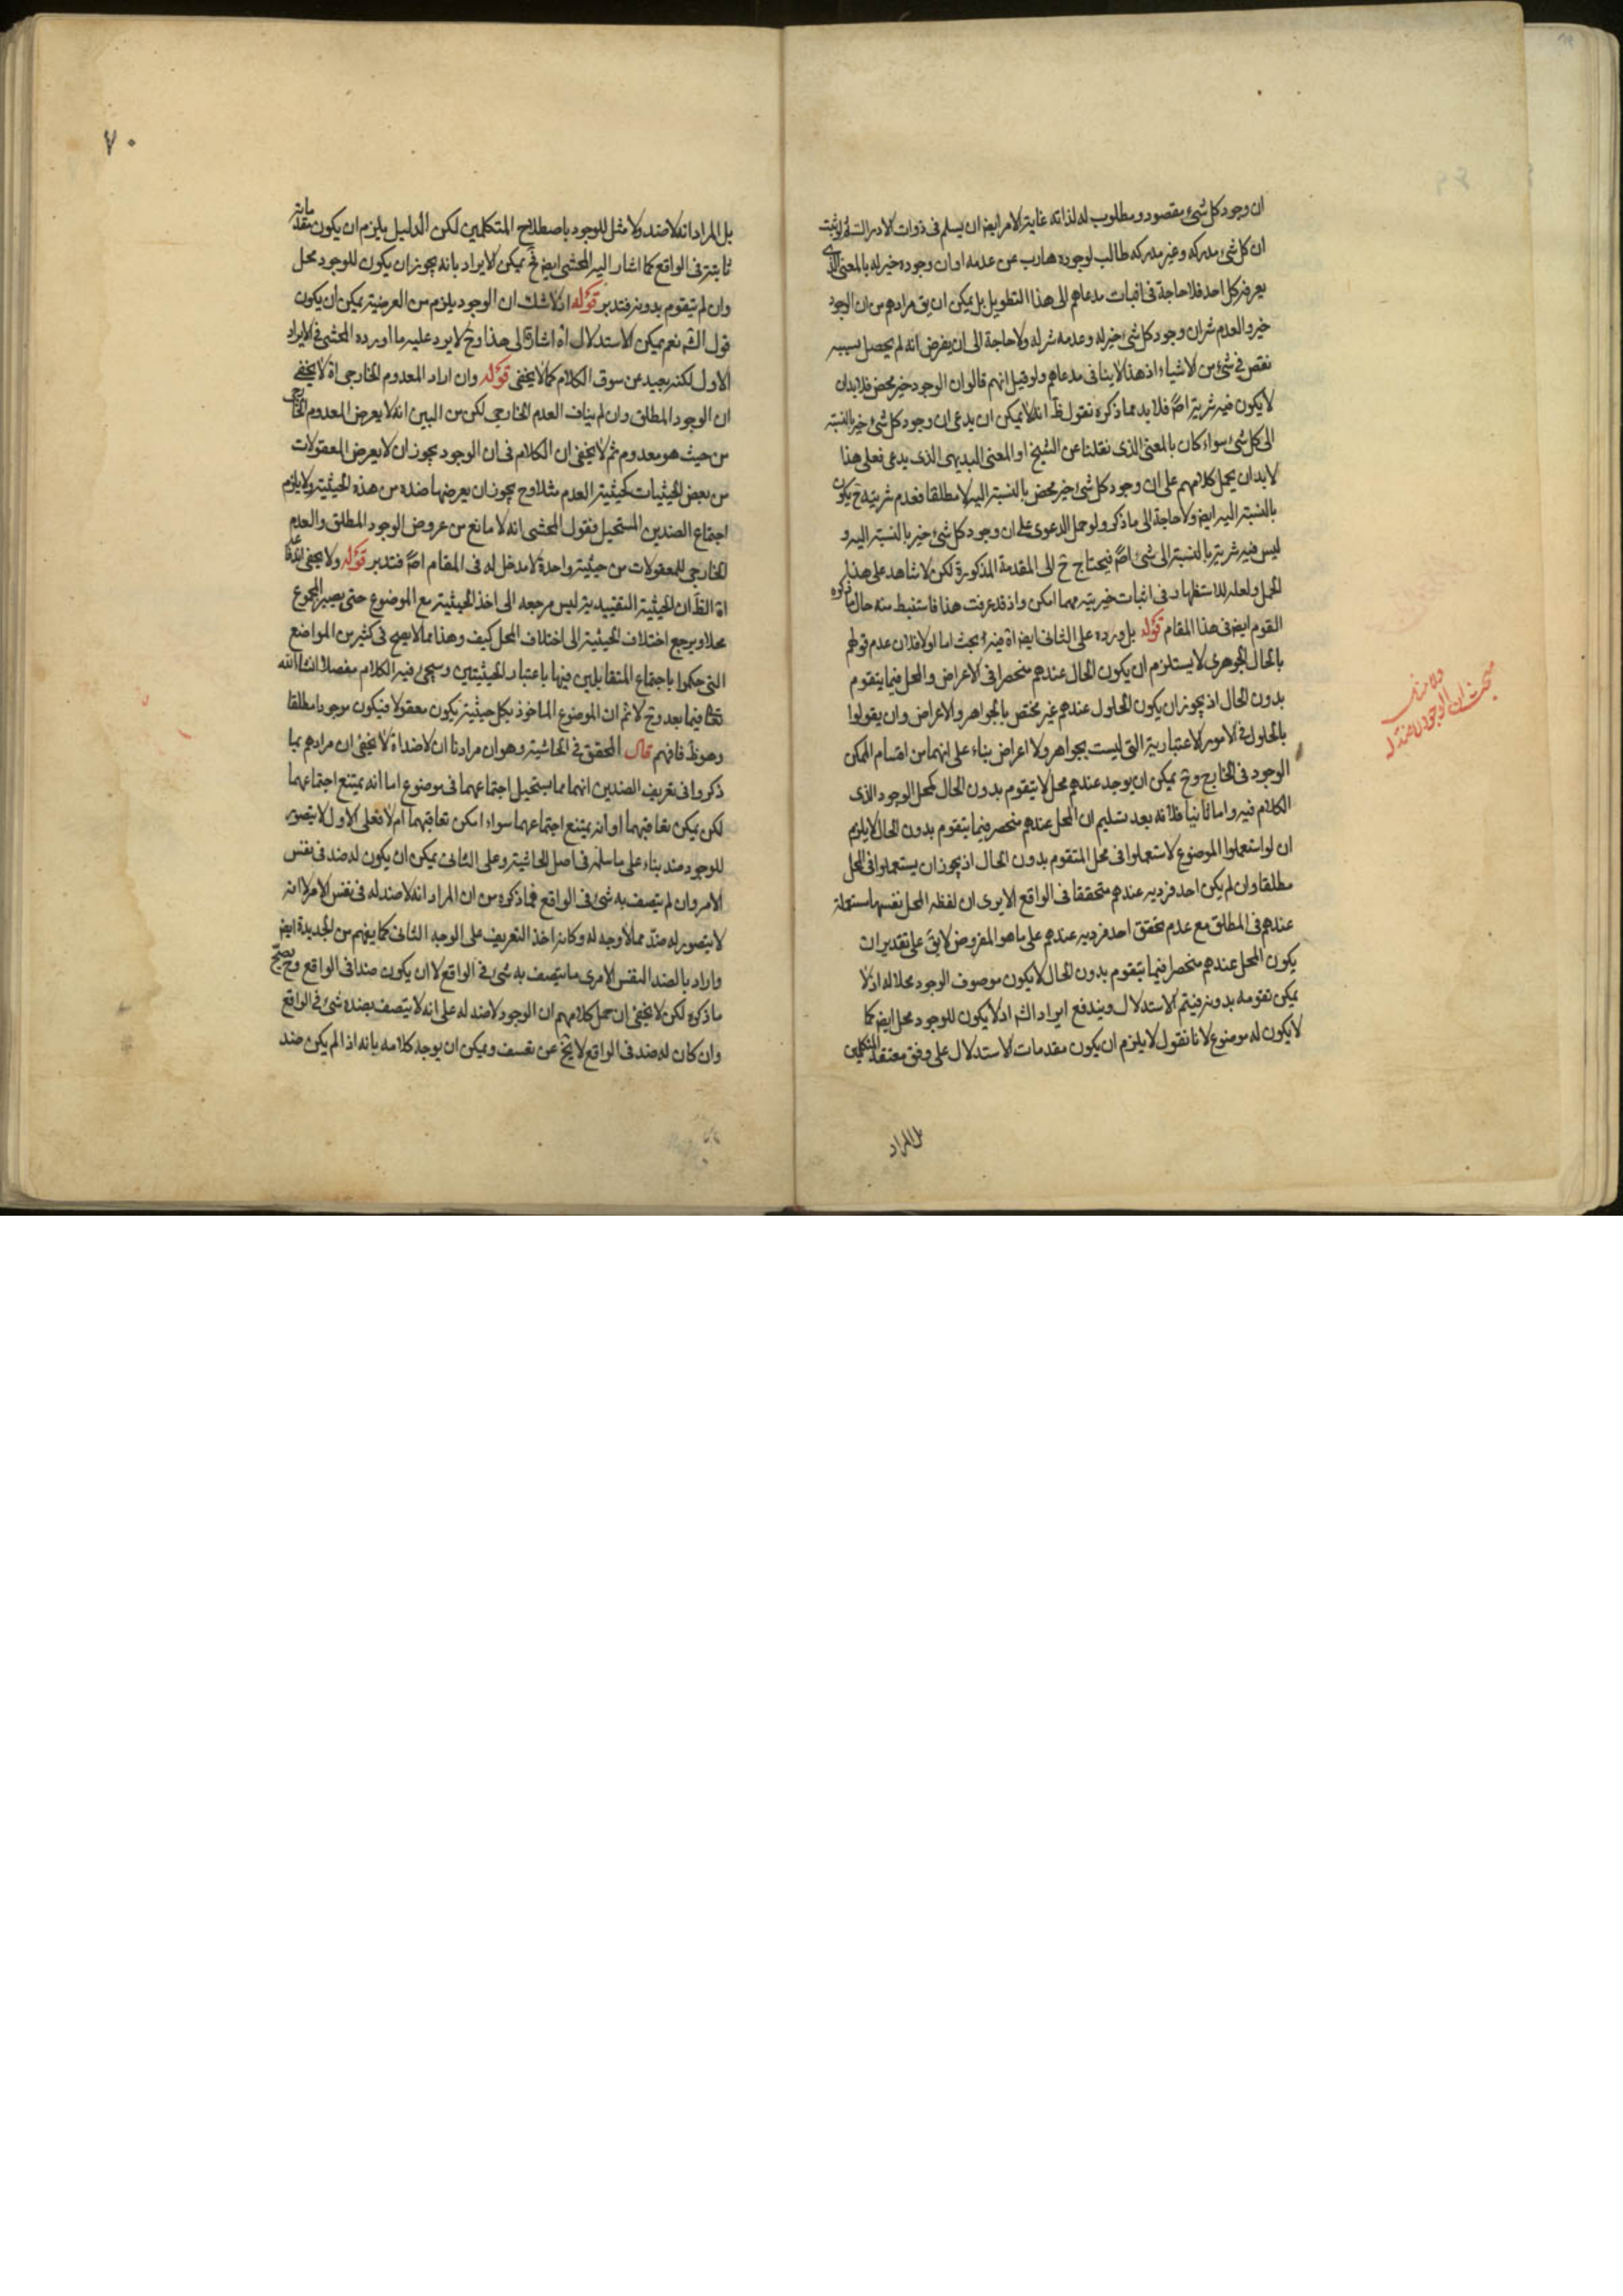 ان وجود كل شئ مقصود ومطلوب له لذاته غاية الامر ايض ان يسلم فى ذوات الادراك
ان كل شئ مدركه وغير مدركه طالب لوجوده هارب عن عدمه او ان وجوده خير له بالمعنى الذى
يعرفه كل احد فلا حاجة فى اثبات مدعاهم الى هذا التطويل بل يمكن ان يق مرادهم من ان الوجود
خير والعدم شر ان وجود كل شئ خير له وعدمه شر له ولا حاجة الى ان يفرض انه لم يحصل بسببه
نقص فى شئ من الاشياء اذ هذا لا ينافى مدعاهم ولو قيل انهم قالوا ان الوجود خير محض فلا بد ان
لا يكون فيه شرية اصً فلا بد مما ذكروه نقول ظَ انه لا يمكن ان يدعى ان وجود كل شئ خير بالنسبة
الى كل شئ سواء كان بالمعنى الذى نقلنا عن الشيخ او المعنى البديهى الذى يدعى فعلى هذا
لا بد ان يحمل كلامهم على ان وجود كل شئ خير محض بالنسبة اليه لا مطلقا فعدم شريته ح يكون
بالنسبة اليه ايض ولا حاجة الى ما ذكر ولو حمل الدعوى على ان وجود كل شئ خير بالنسبة اليه و
ليس فيه شرية بالنسبة الى شئ اصً فيحتاج ح الى المقدمة المذكورة لكن لا شاهد على هذا
الحمل ولعله للاستظهار فى اثبات خيريته مهما امكن واذ قد عرفت هذا فاستنبط منه حال ما ذكره
القوم ايض فى هذا المقام قوله بل ورده على الثانى ايض اه فيه بحث اما اولا فلان عدم قولهم
بالحال الجوهرى لا يستلزم ان يكون الحال عندهم منحصرا فى الاعراض والمحل فيما يتقوم
بدون الحال اذ يجوز ان يكون الحلول عندهم غير مختص بالجواهر والاعراض وان يقولوا
بالحلول فى الامور الاعتبارية التى ليست بجواهر ولا اعراض بناء على انهما من اقسام الممكن
الوجود فى الخارج وح يمكن ان يوجد عندهم محل لا يتقوم بدون الحال كمحل الوجود الذى
الكلام فيه واما ثانيا فلانه بعد تسليم ان المحل عندهم منحصر فيما يتقوم بدون الحال لا يلزم
ان لو استعملوا الموضوع لاستعملوا فى محل المتقوم بدون الحال اذ يجوز ان يستعملوا فى المحل
مطلقا وان لم يكن احد فرديه عندهم متحققا فى الواقع الا يرى ان لفظه المحل نفسها مستعملة
عندهم فى المطلق مع عدم تحقق احد فرديه عندهم على ما هو المفروض لا يقَ على تقدير ان
يكون المحل عندهم منحصرا فيما يتقوم بدون الحال لا يكون موصوف الوجود محلا له اذ لا
يمكن تقومه بدونه فيتم الاستدلال ويندفع ايراد الشه اذ لا يكون للوجود محل ايض كما
لا يكون له موضوع لانا نقول لا يلزم ان يكون مقدمات الاستدلال على وفق معتقد المتكلمين
بل المراد
مبحث ان الوجود لا ضد له
ولا مثل
٧٠
بل المراد انه لا ضد ولا مثل للوجود باصطلاح المتكلمين لكن الدليل يلزم ان يكون مقدماته
ثابتة فى الواقع كما اشار اليه المحشى ايض فح يمكن الايراد بانه يجوز ان يكون للوجود محل
وان لم يتقوم بدونه فتدبر قوله اذ لا شك ان الوجود يلزم من العرضية يمكن ان يكون
قول الشه نعم يمكن الاستدلال اه اشارة الى هذا وح لا يرد عليه ما اورده المحشى فى الايراد
الاول لكنه بعيد عن سوق الكلام كما لا يخفى قوله وان اراد المعدوم الخارجى اه لا يخفى
ان الوجود المطلق وان لم يناف العدم الخارجى لكن من البين انه لا يعرض المعدوم الخارجى
من حيث هو معدوم ثم لا يخفى ان الكلام فى ان الوجود يجوز ان لا يعرض المعقولات
من بعض الحيثيات كحيثية العدم مثلا وح يجوز ان يعرضها ضده من هذه الحيثية ولا يلزم
اجتماع الضدين المستحيل فقول المحشى انه لا مانع من عروض الوجود المطلق والعدم
الخارجى للمعقولات من حيثية واحدة لا مدخل له فى المقام اصً فتدبر قوله ولا يخفى
اه الظَ ان الحيثية التقييدية ليس مرجعه الى اخذ الحيثية مع الموضوع حتى يصير المجموع
محلا ويرجع اختلاف الحيثية الى اختلاف المحل كيف وهذا مما لا يصح فى كثير من المواضع
التى حكموا باجتماع المتقابلين فيها باعتبار الحيثيتين وسيجئ فيه الكلام مفصلا انشا الله
تعالى فيما بعد وح لا ثم ان الموضوع الماخوذ بكل حيثية يكون معقولا فيكون موجودا مطلقا
وهو ظَ فافهم قال المحقق فى الحاشية وهو ان مرادنا ان لا ضد اه لا يخفى ان مرادهم بما
ذكروا فى تعريف الضدين انهما مما يستحيل اجتماعهما فى موضوع اما انه يمتنع اجتماعهما
لكن يمكن تعاقبهما او انه يمتنع اجتماعهما سواء امكن تعاقبهما ام لا فعلى الاول لا يتصور
للوجود ضد بناء على ما سلمه فى اصل الحاشية وعلى الثانى يمكن ان يكون له ضد فى نفس
الامر وان لم يتصف به شئ فى الواقع فما ذكره من ان المراد انه لا ضد له فى نفس الامر لا انه
لا يتصور له ضد مما لا وجه له وكانه اخذ التعريف على الوجه الثانى كما يفهم من الجديدة ايض
واراد بالضد النفس الامرى ما يتصف به شئ فى الواقع لا ان يكون ضدا فى الواقع وح يصح
ما ذكره لكن لا يخفى ان حمل كلامهم ان الوجود لا ضد له على انه لا يتصف بضده شئ فى الواقع
وان كان له ضد فى الواقع لا يخ عن تعسف ويمكن ان يوجه كلامه بانه اذا لم يكن ضد